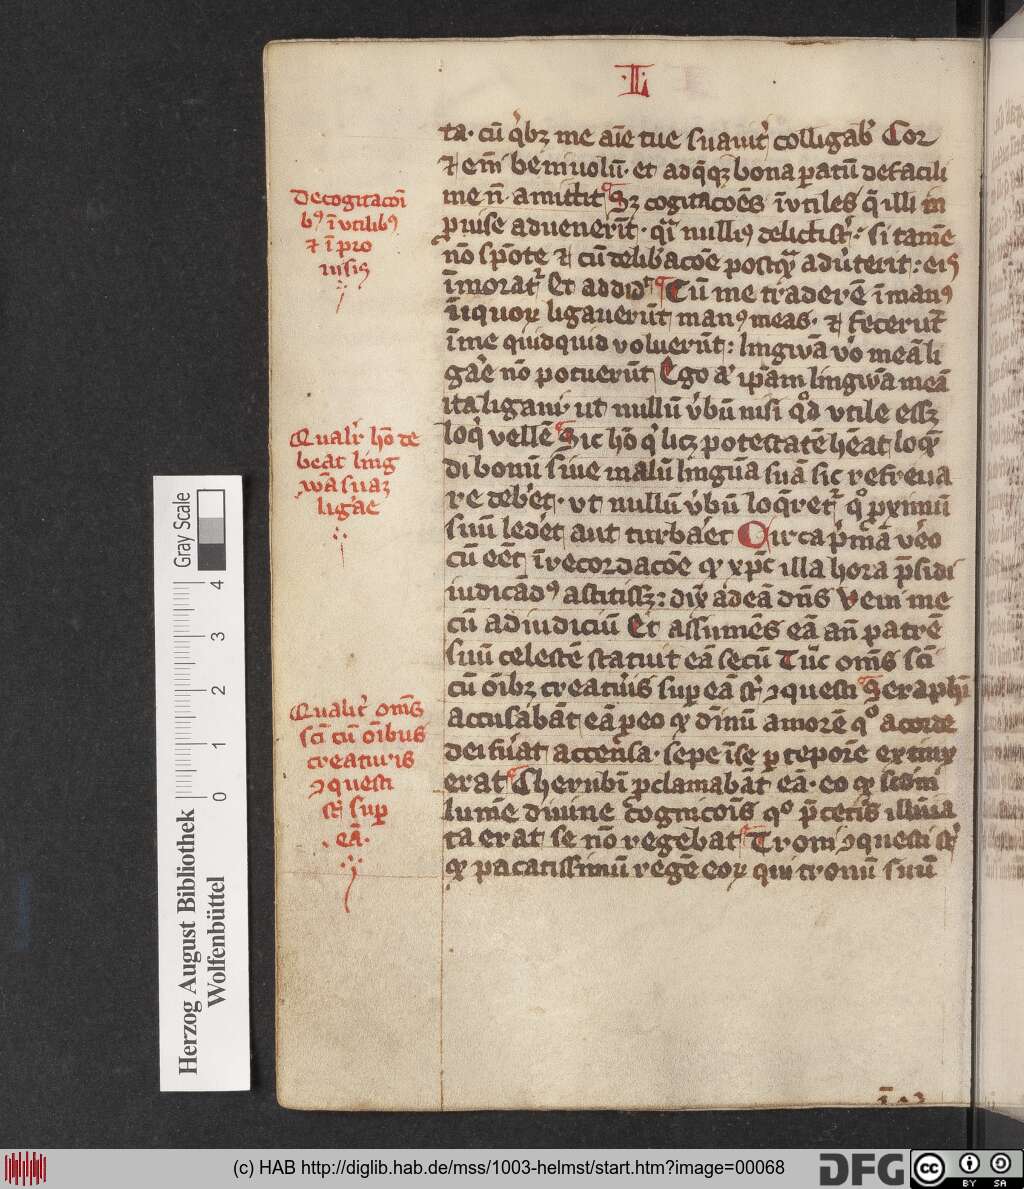 ·II·
ta· cū q̉bꝫ me aīe tue suauit̉ colligab̉ Cor
⁊ em̄ beniuolū· et ad q̄qꝫ bona paratū de facili
me n̄ amittit Sꝫ cogitacōēs īvtiles q̄ illi in
puise aduenerīt· qī nulliꝰ delicti st̉: si tamē
nō spōte ⁊ cū delib̉acōe postq̄ adūterit: eis
īmorat̉ Et addid̉ Cū me traderē ī manꝰ
īiquoꝝ ligauerūt manꝰ meas· ⁊ fecerūt
ī me quidquid voluerūt: lingwā v̉o meā li
gar̉e nō potuerūt Ego a̓ ip̄am lingwā meā
ita ligaui· ut nullū v̉bū nisi qd̉ vtile essꝫ
loq̉ vellē Sic hō q̉ licꝫ potestatē hēat loq̄
di bonū siue malū linguā suā sic refrena
re deb̉et· vt nullū v̉bū loq̄ret̉ qº pximū
suū leder̉et aut turbar̉et Circa p̉mā v̉o
cū eēt ī recordacōe qꝙ xp̄c illa hora p̄sidi
iudicādꝰ astitissꝫ: dix̉ ad eā dn̄s Veni me
cū ad iudiciū Et assumēs eā an̄ patrē
suū celestē statuit eā secū Tūc om̄s sc̄i
cū oībꝫ creatur̉is sup eā st̉ ꝯquesti Seraphī
accusabāt eā p eo qꝙ diuinū amorē qº a corde
dei fu̓at accensa· sepe ī se p teporē extinx
erat Cherubī p̄clamabāt eā· eo qꝙ scdm̄
lumē diuine cognicōis qº p̄ ceteris illūina
ta erat se nō regebat Troni ꝯquesti st̉
qꝙ pacatissimū regē eoꝝ qui tronū suū
De cogitacōi
bꝰ īvtilibꝰ
⁊ īpro
uisis
Qualit̉ hō de
beat ling
wā suaꝫ
ligar̉e
Qualit̉ om̄s
sc̄i cū oībus
creatur̉is
ꝯquesti
st̉ sup
eā·
Gray Scale
0 1 2 3 4
Herzog August Bibliothek
Wolfenbüttel
(c) HAB http://diglib.hab.de/mss/1003-helmst/start.htm?image=00068
DFG
cc BY SA